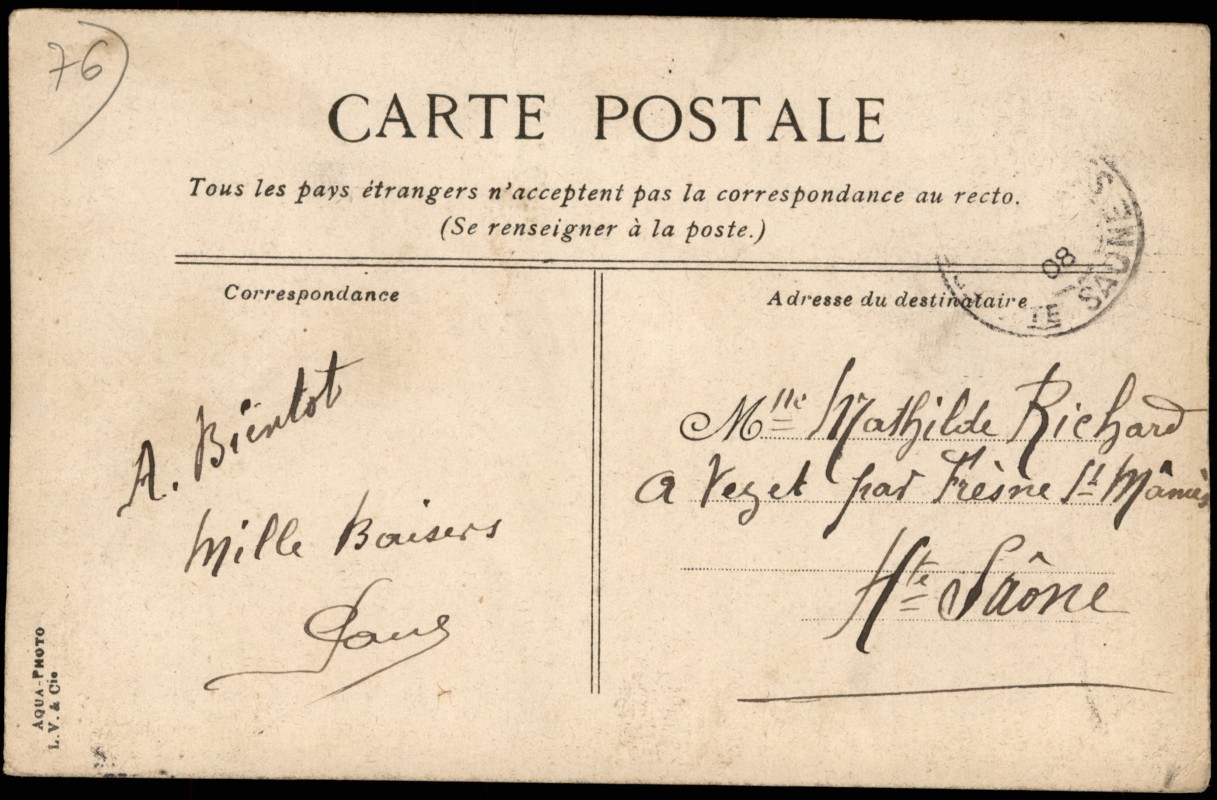 76)
CARTE POSTALE
Tous les pays étrangers n'acceptent pas la correspondance au recto.
(Se renseigner à la poste.)
Correspondance
A. Bientot
Mille Baisers
AQUA-PHOTO
L.V. & Cie
Adresse du destinataire
08
SAONE
Mlle Mathilde Richard
a Vezet par Frèsne St Mâmès
Hte Saône